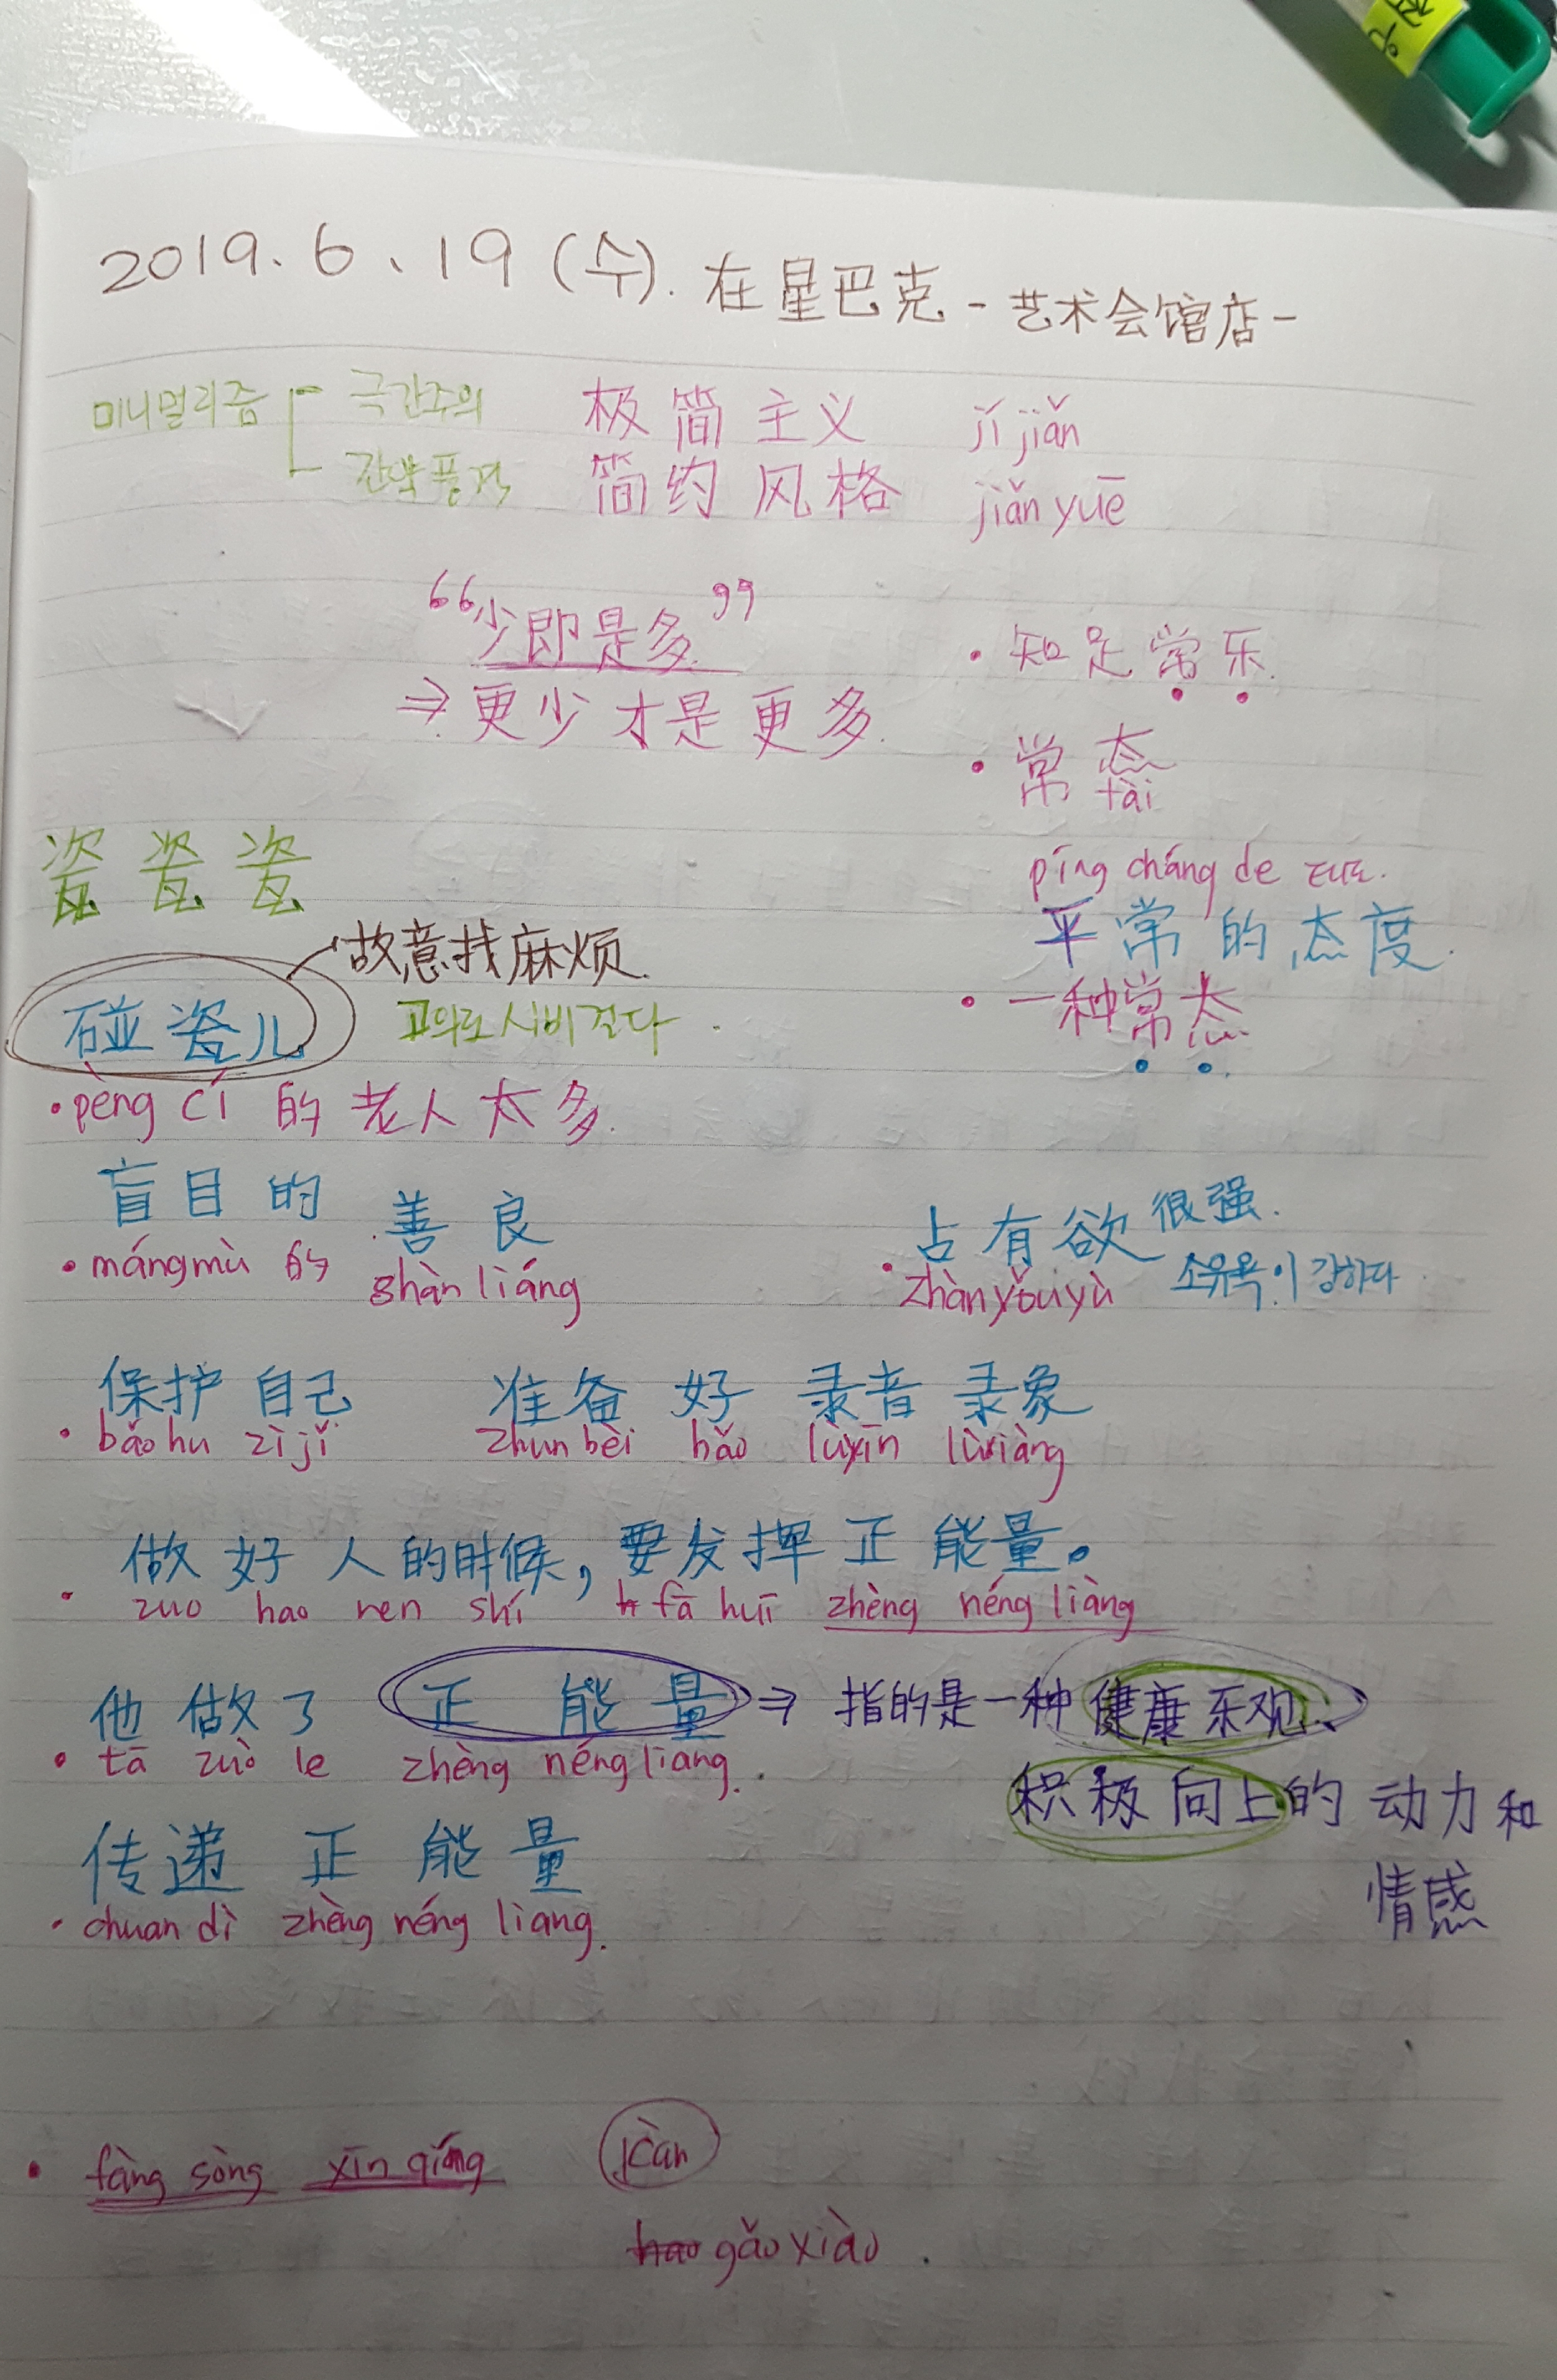 2019. 6. 19 (수). 在星巴克 - 艺术会馆店 -
미니멀리즘 극간주의 极简主义 jí jiǎn
간약풍격 简约风格 jiǎn yuē
“少即是多”
⇒ 更少才是更多.
• 知足常乐.
• 常态
tài
píng cháng de
平常的态度.
• 一种常态
瓷 瓷 瓷
故意找麻烦.
碰瓷儿 고의로 시비걸다.
• pèng cí 的老人太多.
盲目的 善良
• mángmù 的 shàn liáng
占有欲很强.
• zhàn yǒu yù 소유욕이 강하다
保护自己 准备好 录音 录象
• bǎo hu zì jǐ zhun bèi hǎo lùyīn lùxiàng
做好人的时候, 要发挥正能量。
• zuo hao ren shí fā huī zhèng néng liàng
他做了 正能量 ⇒ 指的是一种健康乐观、
• tā zuò le zhèng néng liang.
积极向上的动力和
情感
传递正能量
• chuan dì zhèng néng liang.
• fàng sòng xīn qíng kàn
hao gǎo xiào.